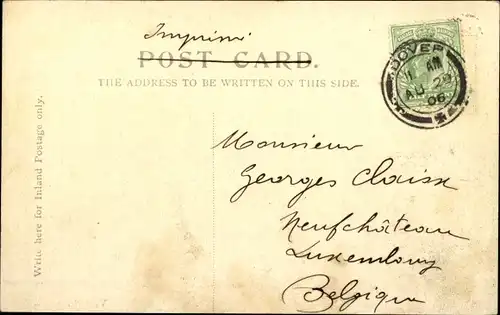 Imprimé
POST CARD.
THE ADDRESS TO BE WRITTEN ON THIS SIDE.
DOVER
AU 22
06
Write here for Inland Postage only.
Monsieur
Georges
Neufchâteau
Luxembourg
Belgique